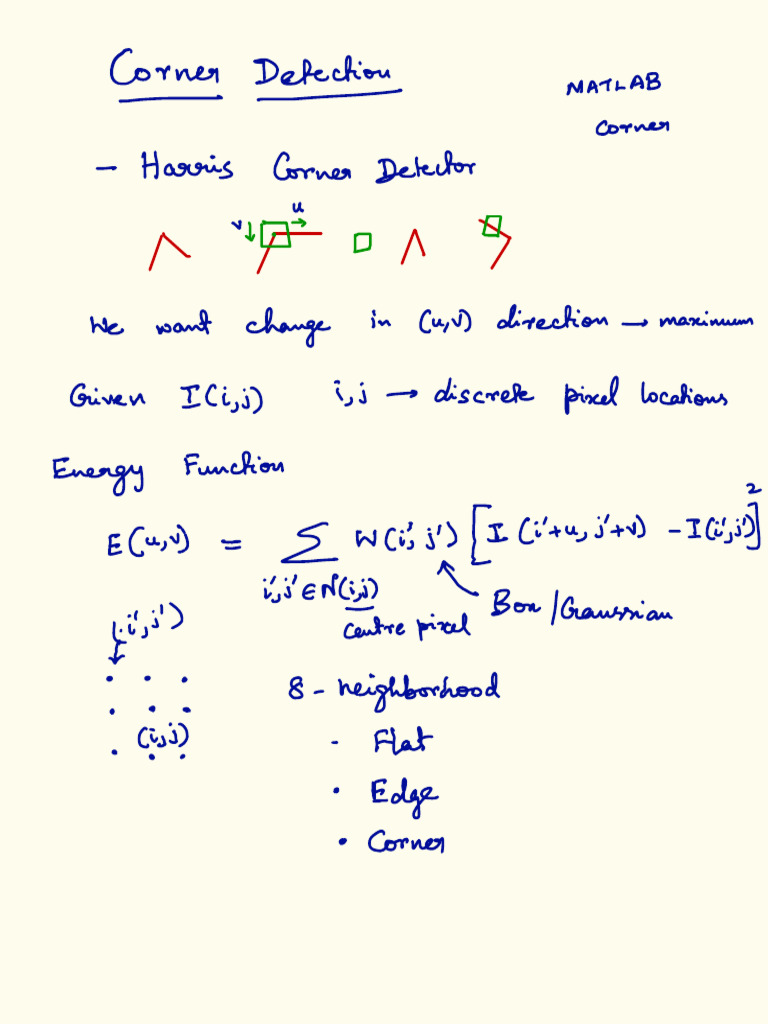 Corner Detection
MATLAB
Corner
- Harris Corner Detector
u
v
We want change in (u,v) direction → maximum
Given I(i,j) i,j → discrete pixel locations
Energy Function
E(u,v) = Σ W(i',j') [I(i'+u, j'+v) - I(i',j')]²
i',j' ∈ N(i,j)
centre pixel
Box/Gaussian
(i',j')
8 - neighborhood
(i,j)
- Flat
• Edge
• Corner